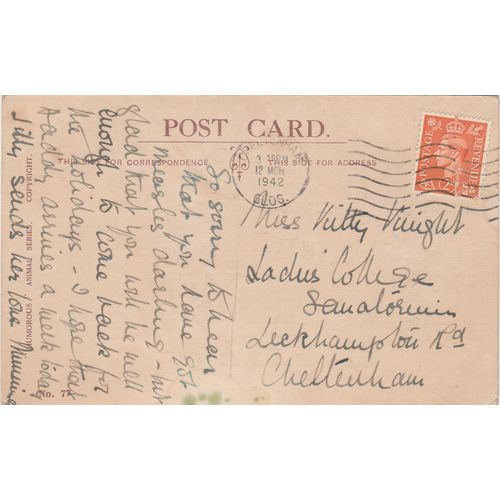 POST CARD.
THIS SPACE FOR CORRESPONDENCE
THIS SIDE FOR ADDRESS
CHELTENHAM
12 MCH
1942
GLOS
POSTAGE
REVENUE
HUMOROUS ANIMAL SERIES. COPYRIGHT.
No. 77
So sorry to hear
that you have got
measles darling - but
glad that you will be well
enough to come back for
the holidays - I hope that
Daddy arrives a week today
sends her love
Miss Kitty Knight
Ladies College
Sanatorium
Leckhampton Rd
Cheltenham